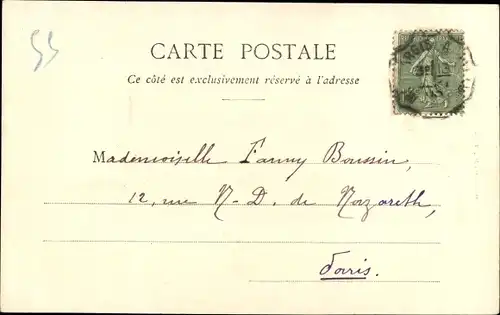 55
CARTE POSTALE
Ce côté est exclusivement réservé à l'adresse
Mademoiselle Fanny Boussin,
12, rue N.-D. de Nazareth,
Paris.